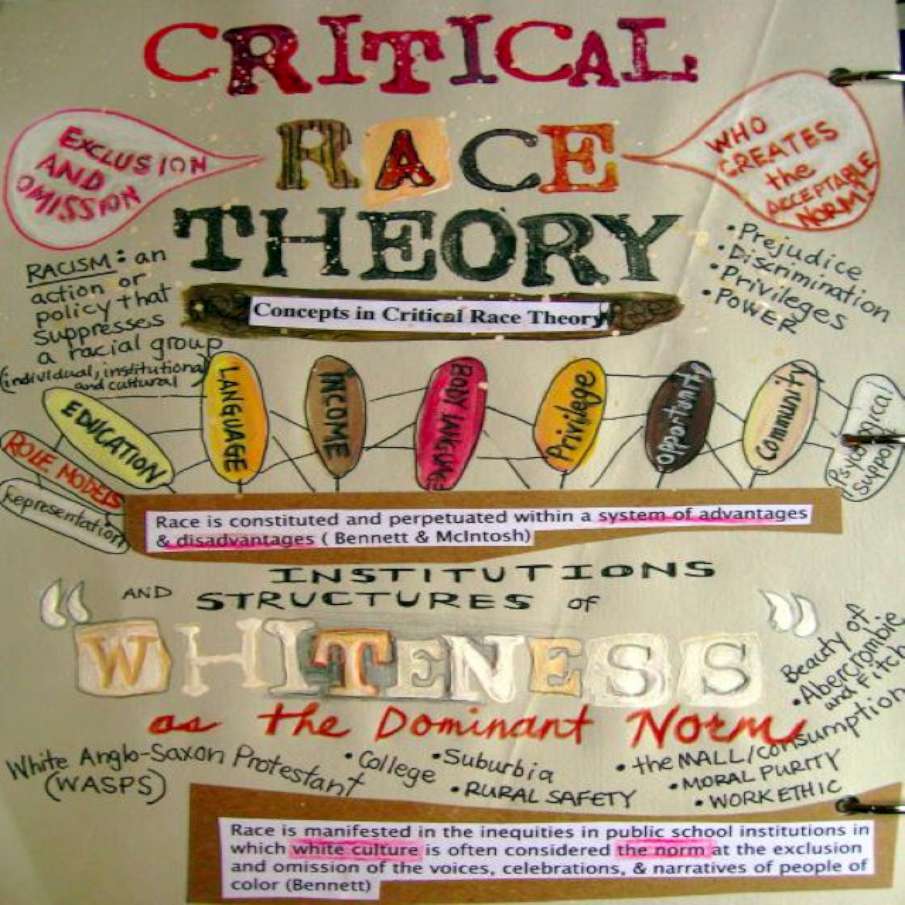 CRITICAL
RACE
THEORY
EXCLUSION
AND
OMISSION
WHO
CREATES
the
ACCEPTABLE
NORM?
RACISM: an
action or
policy that
suppresses
a racial group
(individual, institutional
and cultural
Concepts in Critical Race Theory
•Prejudice
•Discrimination
•Privileges
•POWER
EDUCATION
LANGUAGE
INCOME
BODY LANGUAGE
Privilege
Opportunity
Community
Psychological
Support
ROLE MODELS
Representation
Race is constituted and perpetuated within a system of advantages
& disadvantages ( Bennett & McIntosh)
INSTITUTIONS
AND STRUCTURES of
"WHITENESS"
as the Dominant Norm
Beauty of
•Abercrombie
and Fitch
White Anglo-Saxon Protestant
(WASPS)
•College
•Suburbia
•RURAL SAFETY
•the MALL/consumption
•MORAL PURITY
•WORK ETHIC
Race is manifested in the inequities in public school institutions in
which white culture is often considered the norm at the exclusion
and omission of the voices, celebrations, & narratives of people of
color (Bennett)